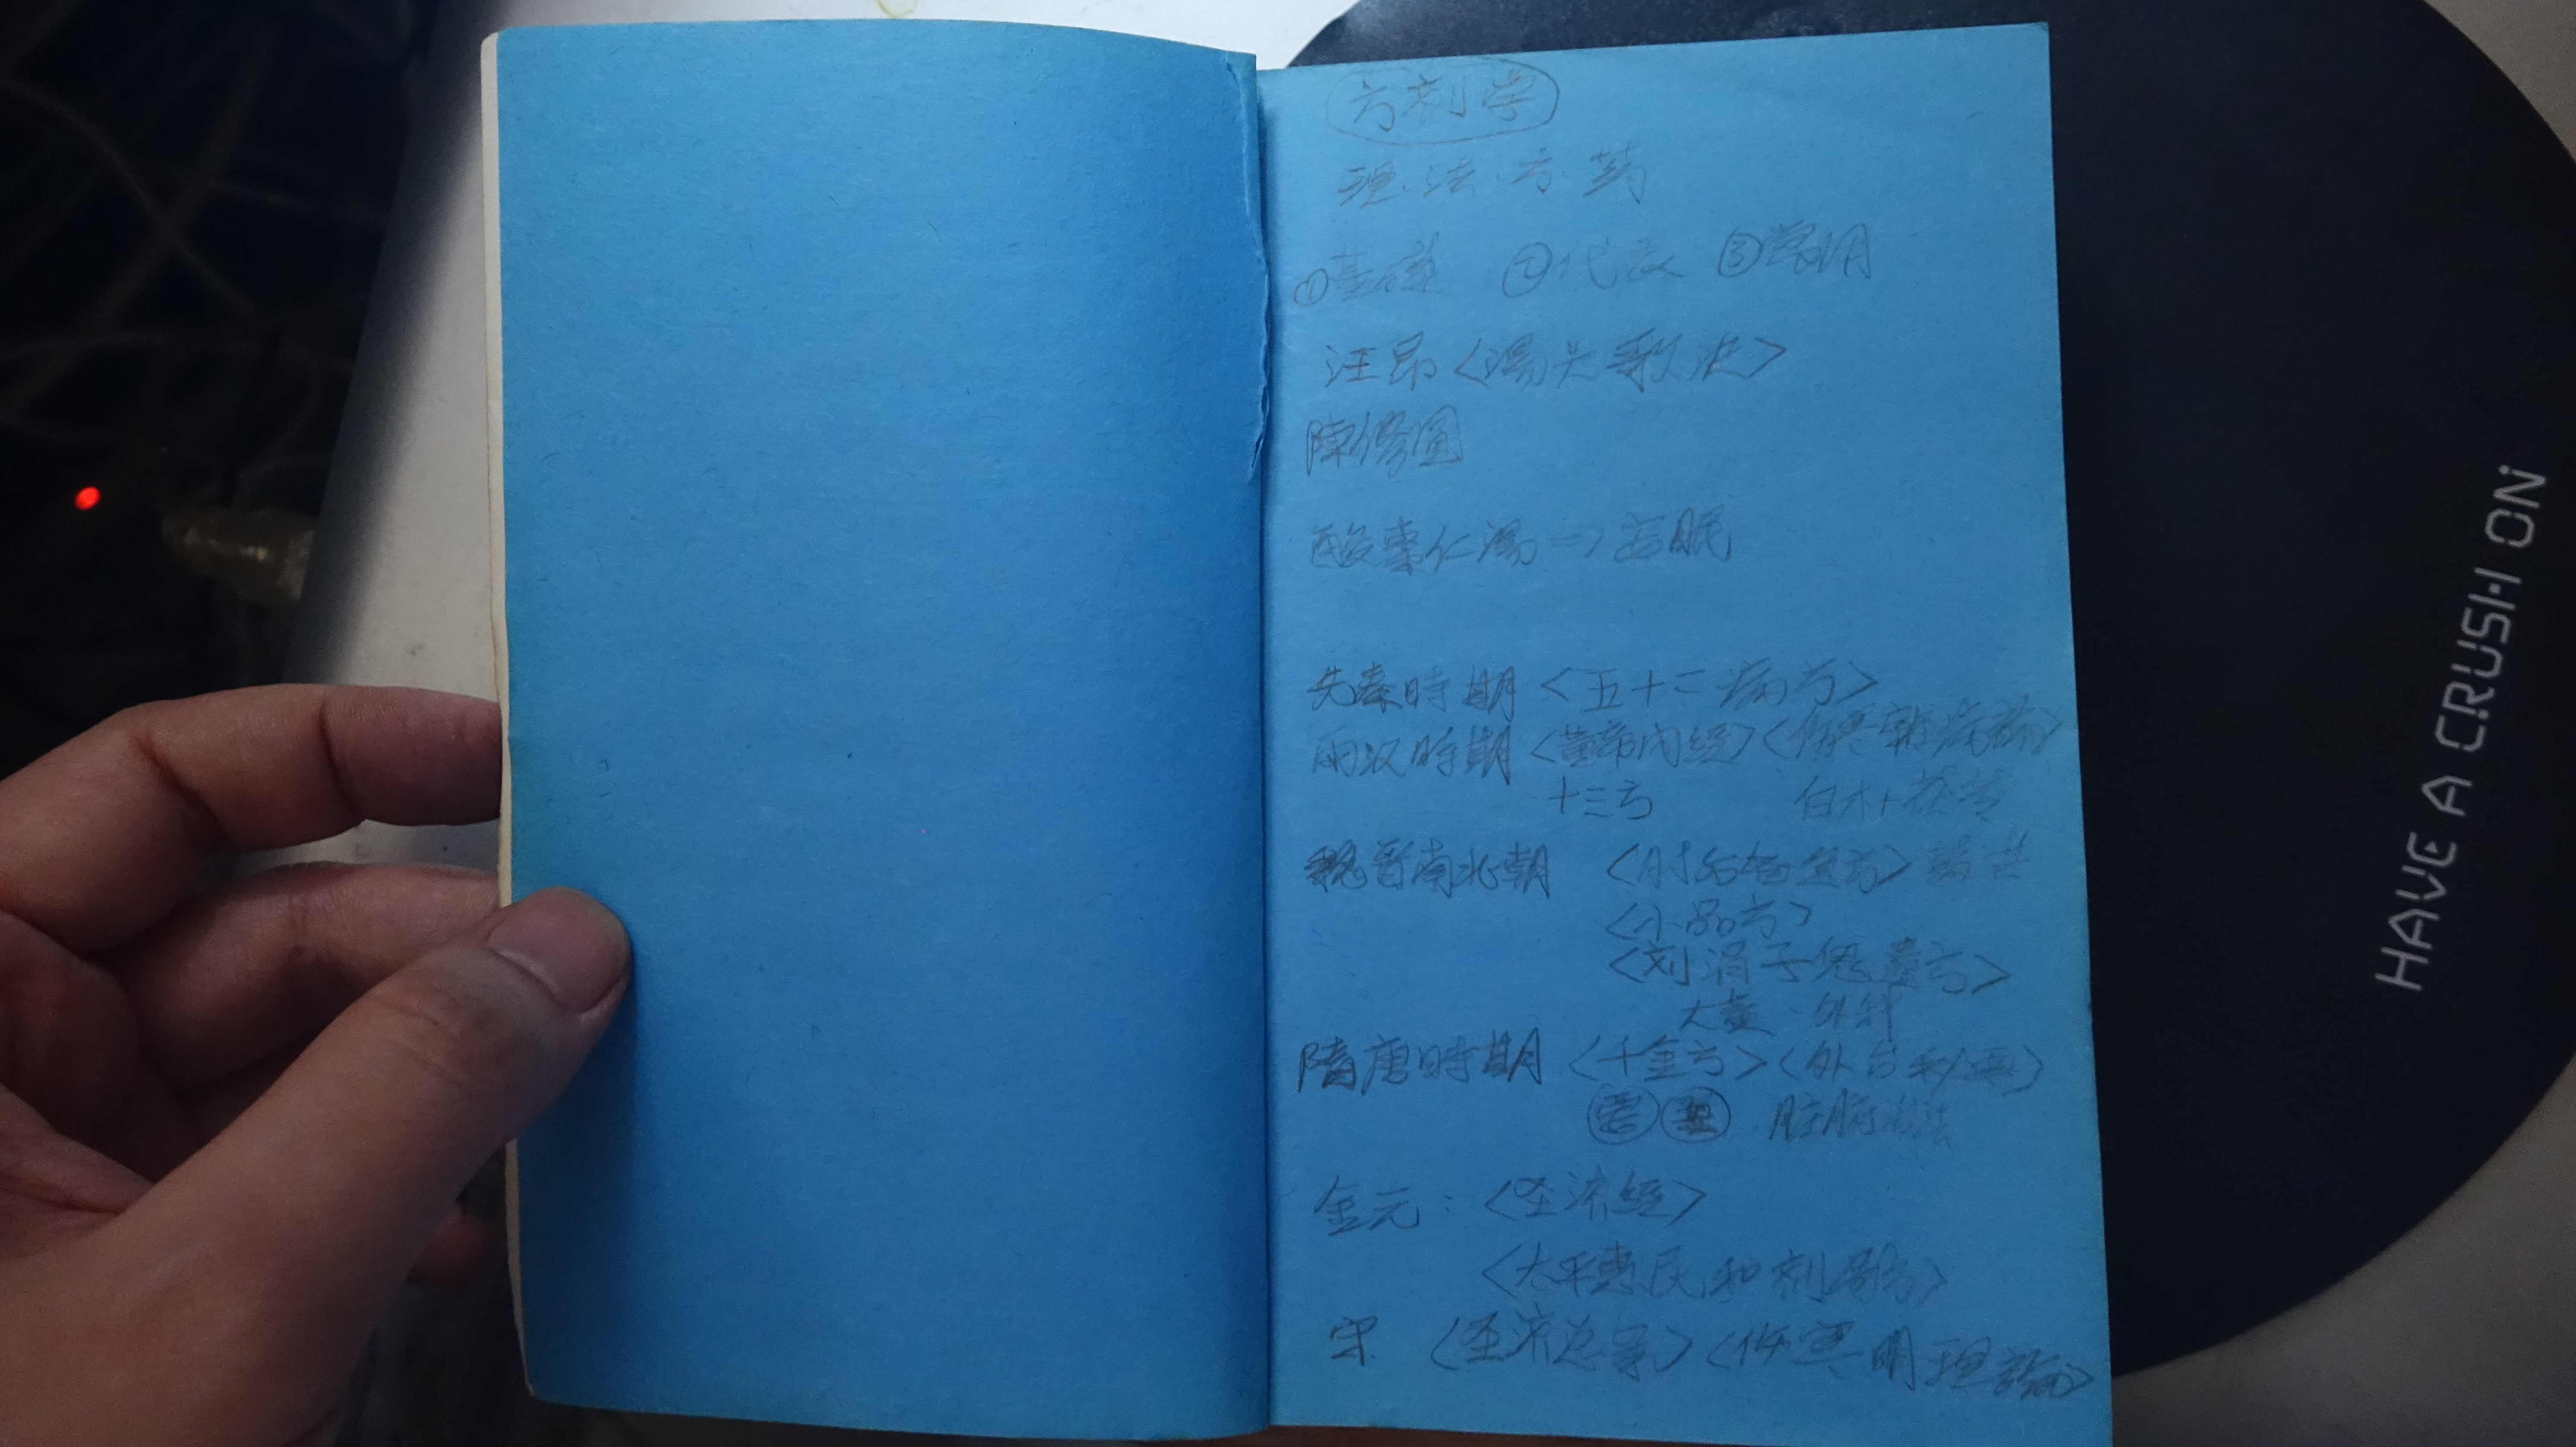 方剂学
理.法.方.药
①基礎 ②代表 ③常用
汪昂〈湯头歌决〉
陳修圓
酸棗仁湯⇒失眠
先秦時期〈五十二病方〉
兩汉時期〈黃帝内经〉〈傷寒雜病論〉
十三方 白术+茯苓
魏晋南北朝 〈肘后备急方〉葛洪
〈小品方〉
〈刘涓子鬼遺方〉
大黃.外科
隋唐時期〈千金方〉〈外台秘要〉
脏腑治法
金元：〈圣济经〉
〈太平惠民和剂局方〉
宋 〈圣济总录〉〈伤寒明理論〉
HAVE A CRUSH ON